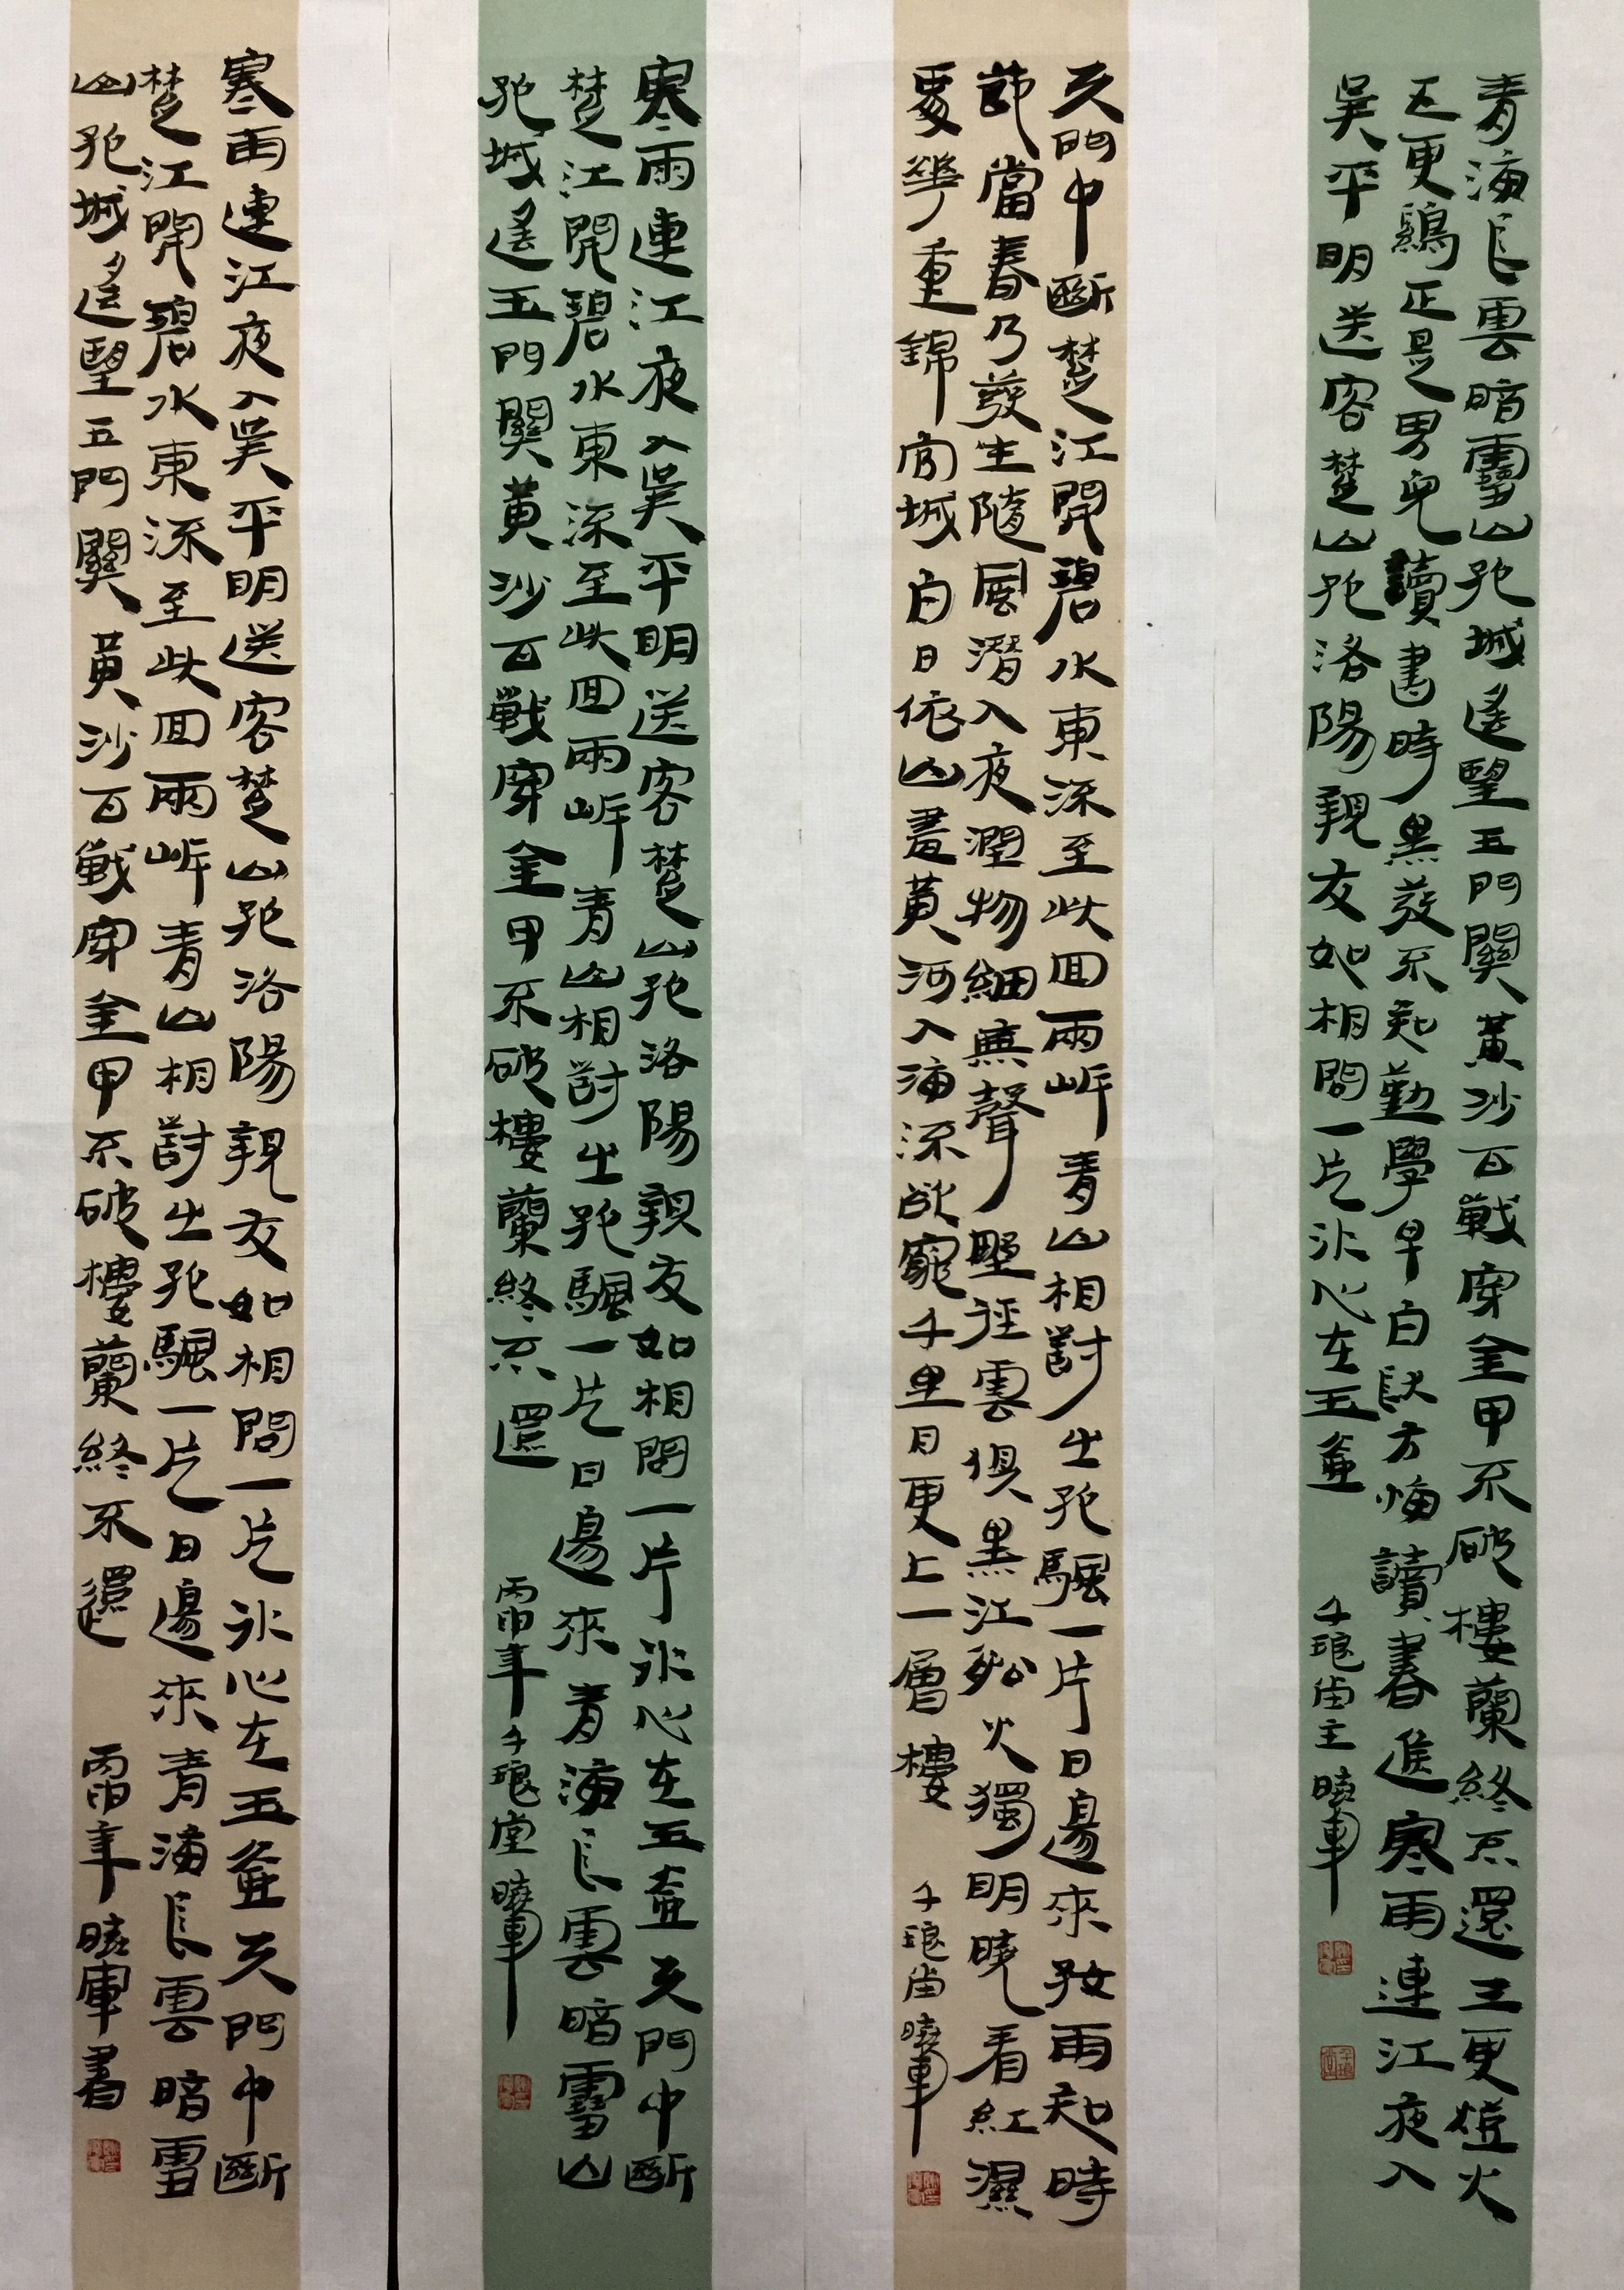 青海長雲暗雪山孤城遙望玉門關黃沙百戰穿金甲不破樓蘭終不還三更燈火
五更鷄正是男兒讀書時黑发不知勤學早白首方悔讀書遲寒雨連江夜入
吳平明送客楚山孤洛陽親友如相問一片冰心在玉壺
千琅堂主曉軍
天門中斷楚江開碧水東流至此回兩岸青山相對出孤颿一片日邊來好雨知時
節當春乃發生隨風潛入夜潤物細無聲野徑雲俱黑江船火獨明曉看紅濕
處華重錦官城白日依山盡黃河入海流欲窮千里目更上一層樓
千琅堂曉軍
寒雨連江夜入吳平明送客楚山孤洛陽親友如相問一片冰心在玉壺天門中斷
楚江開碧水東流至此回兩岸青山相對出孤颿一片日邊來青海長雲暗雪山
孤城遙玉門關黃沙百戰穿金甲不破樓蘭終不還
丙申年千琅堂曉軍
寒雨連江夜入吳平明送客楚山孤洛陽親友如相問一片冰心在玉壺天門中斷
楚江開碧水東流至此回兩岸青山相對出孤颿一片日邊來青海長雲暗雪
山孤城遙望玉門關黃沙百戰穿金甲不破樓蘭終不還
丙申年曉軍書